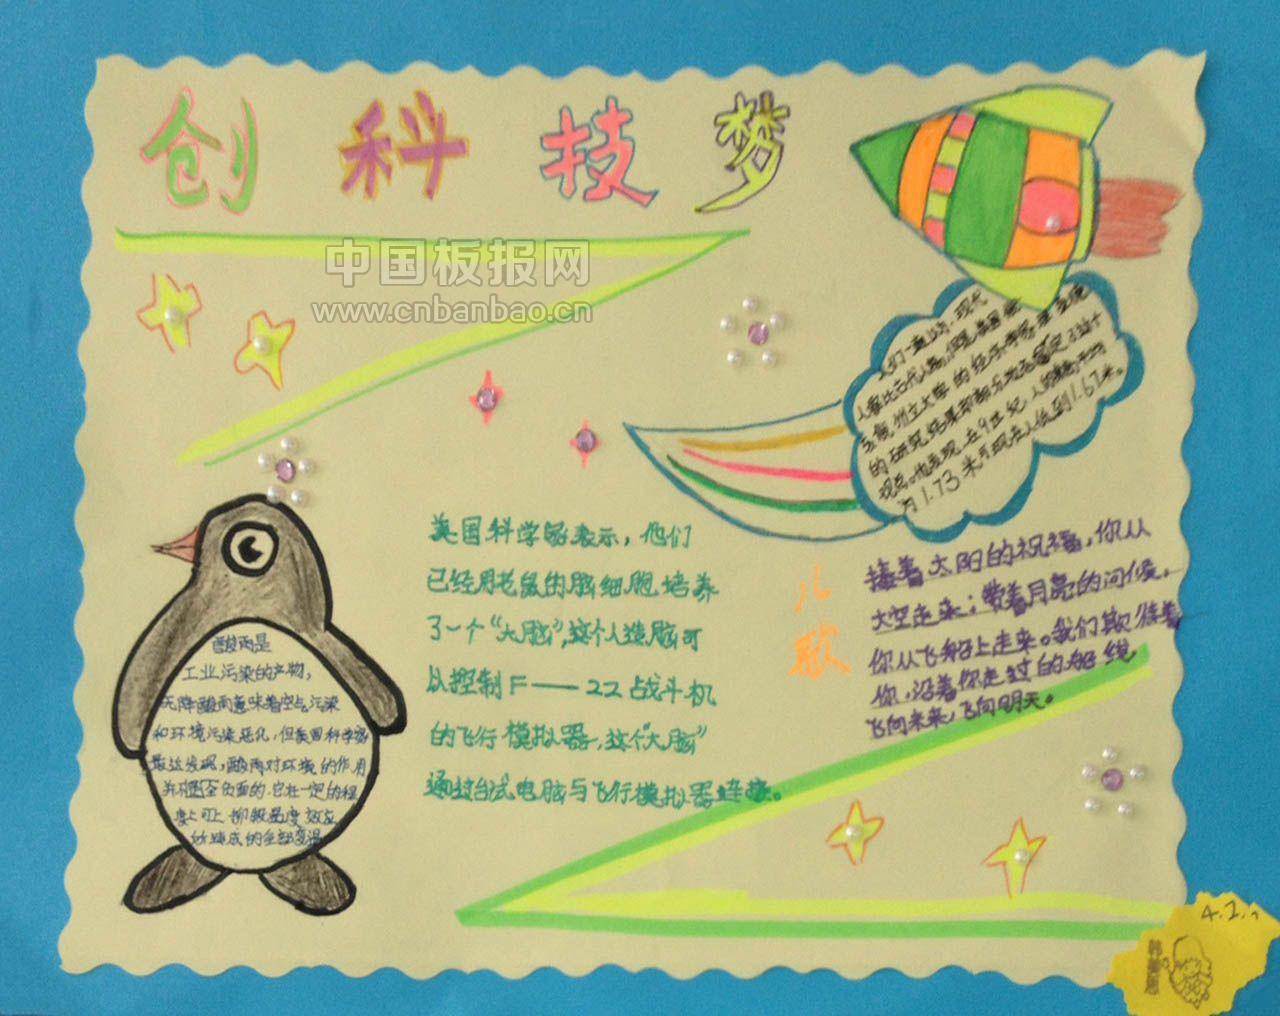 创科技梦
中国板报网
www.cnbanbao.cn
人们一直以为,现代
人要比古代人高,但是美国俄
亥俄州立大学的经济学家
的研究结果却部分地否定了这个
观点。他发现,在9世纪,人的
为1.73米而现在人低到1.67米。
美国科学家表示,他们
已经用老鼠的脑细胞培养
了一个“大脑”,这个人造脑可
以控制F——22战斗机
的飞行模拟器,这个“大脑”
通过台式电脑与飞行模拟器连接。
儿歌
接着太阳的祝福,你从
太空走来;带着月亮的问候,
你从飞船上走来。我们期待着
你,沿着你走过的航线,
飞向未来,飞向明天。
酸雨是
工业污染的产物,
天降酸雨意味着空气污染
和环境污染恶化,但美国科学家
最近发现,酸雨对环境的作用
并不全负面的,它在一定的程
度上可上抑制温度效应
所造成的全球变温
4.2.